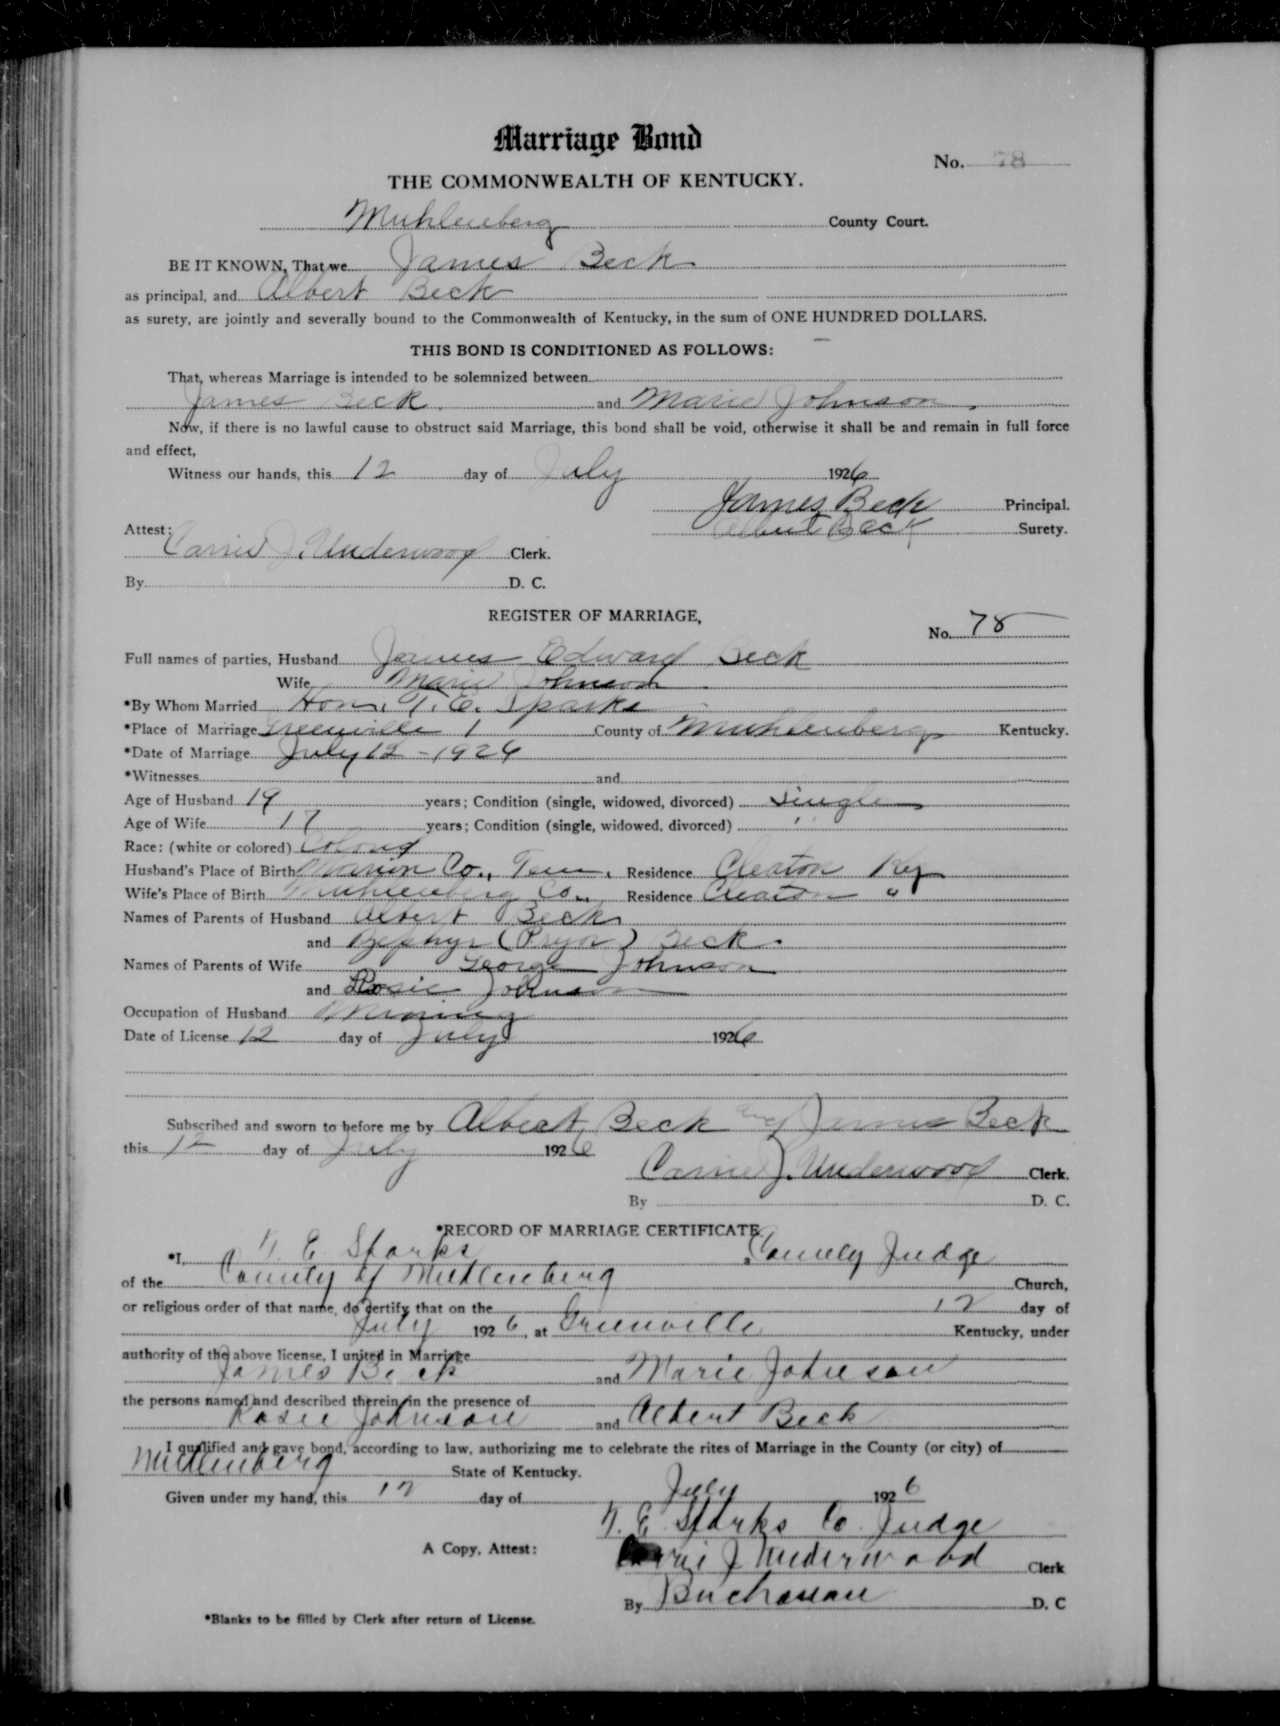 Marriage Bond
No. 78
THE COMMONWEALTH OF KENTUCKY.
Muhlenberg County Court.
BE IT KNOWN, That we James Beck
as principal, and Albert Beck
as surety, are jointly and severally bound to the Commonwealth of Kentucky, in the sum of ONE HUNDRED DOLLARS.
THIS BOND IS CONDITIONED AS FOLLOWS:
That, whereas Marriage is intended to be solemnized between
James Beck and Marie Johnson.
Now, if there is no lawful cause to obstruct said Marriage, this bond shall be void, otherwise it shall be and remain in full force
and effect,
Witness our hands, this 12 day of July 1926
James Beck Principal.
Albert Beck Surety.
Attest:
Carrie J. Underwood Clerk.
By D. C.
REGISTER OF MARRIAGE,
No. 78
Full names of parties, Husband James Edward Beck
Wife Marie Johnson
*By Whom Married Hon. T. E. Sparks
*Place of Marriage Greenville County of Muhlenberg Kentucky.
*Date of Marriage July 12 - 1926
*Witnesses and
Age of Husband 19 years; Condition (single, widowed, divorced) Single
Age of Wife 17 years; Condition (single, widowed, divorced) "
Race: (white or colored) Colored
Husband's Place of Birth Marion Co., Tenn. Residence Cleaton Ky
Wife's Place of Birth Muhlenberg Co., Residence Cleaton "
Names of Parents of Husband Albert Beck
and Zephyr (Pryor) Beck.
Names of Parents of Wife George Johnson
and Rosie Johnson
Occupation of Husband Mining
Date of License 12 day of July 1926
Subscribed and sworn to before me by Albert Beck and James Beck
this 12 day of July 1926
Carrie J. Underwood Clerk.
By D. C.
*RECORD OF MARRIAGE CERTIFICATE
*I, T. E. Sparks County Judge
of the County of Muhlenberg Church,
or religious order of that name, do certify that on the 12 day of
July 1926, at Greenville Kentucky, under
authority of the above license, I united in Marriage
James Beck and Marie Johnson
the persons named and described therein in the presence of
Rosie Johnson and Albert Beck
I qualified and gave bond, according to law, authorizing me to celebrate the rites of Marriage in the County (or city) of
Muhlenberg State of Kentucky.
Given under my hand, this 12 day of July 1926
T. E. Sparks Co. Judge
A Copy, Attest: Carrie J Underwood Clerk
By Buchanan D. C
*Blanks to be filled by Clerk after return of License.